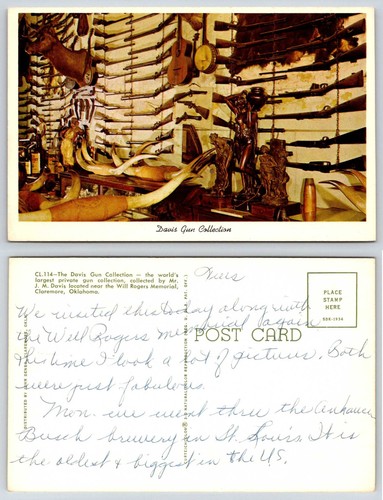 Davis Gun Collection
CL.114—The Davis Gun Collection — the world's
largest private gun collection, collected by Mr.
J. M. Davis located near the Will Rogers Memorial,
Claremore, Oklahoma.
Thurs
PLACE
STAMP
HERE
We visited this today along with
the Will Rogers memorial again
POST CARD
this time I took a lot of pictures. Both
were just fabulous.
Mon. we went thru the Anhauser
Busch brewery in St. Louis. It is
the oldest & biggest in the U.S.